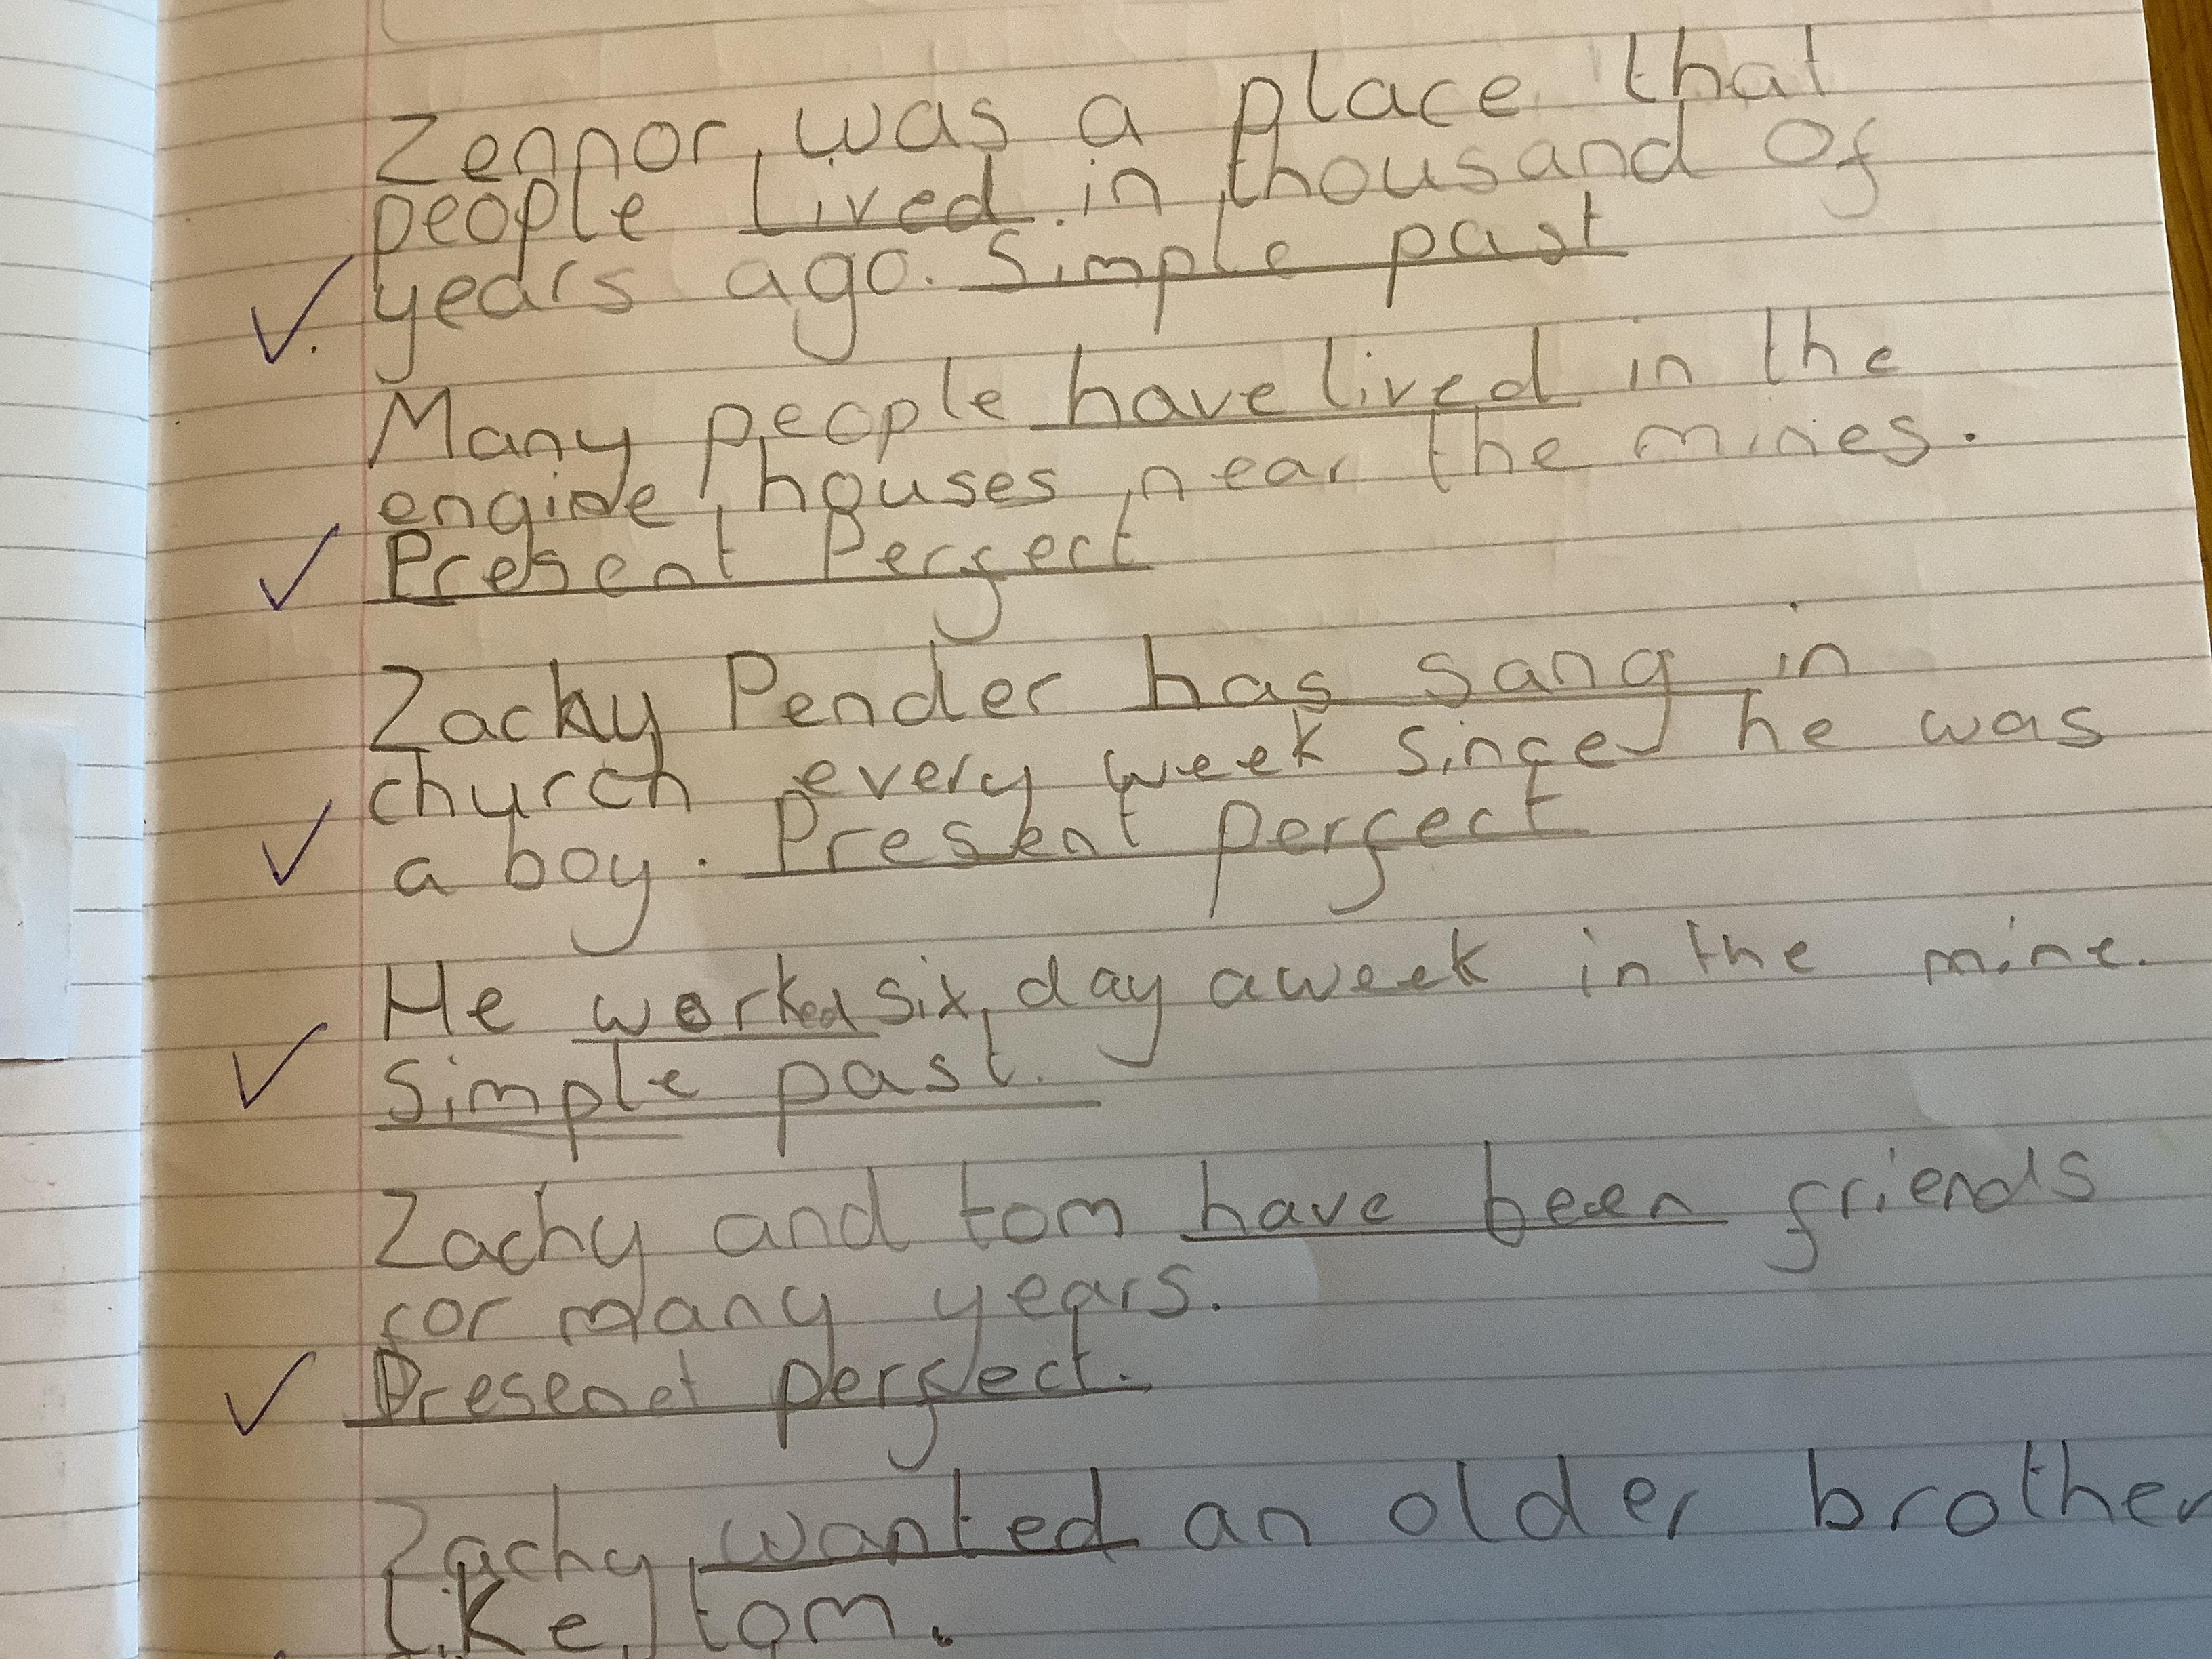 Zennor was a place that
people lived in thousand of
years ago. Simple past
Many people have lived in the
engine houses near the mines.
Present Perfect
Zacky Pender has sang in
church every week since he was
a boy. Present perfect
He worked six day a week in the mine.
Simple past.
Zachy and tom have been friends
for many years.
Presenet perfect.
Zachy wanted an older brother
like tom.